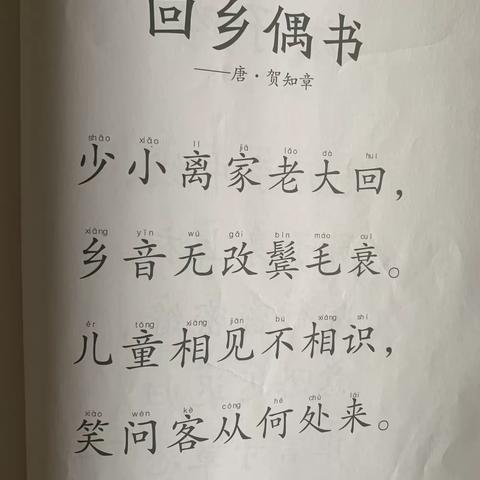 回乡偶书
——唐·贺知章
shào xiǎo lí jiā lǎo dà huí
少小离家老大回，
xiāng yīn wú gǎi bìn máo cuī
乡音无改鬓毛衰。
ér tóng xiāng jiàn bù xiāng shí
儿童相见不相识，
xiào wèn kè cóng hé chù lái
笑问客从何处来。